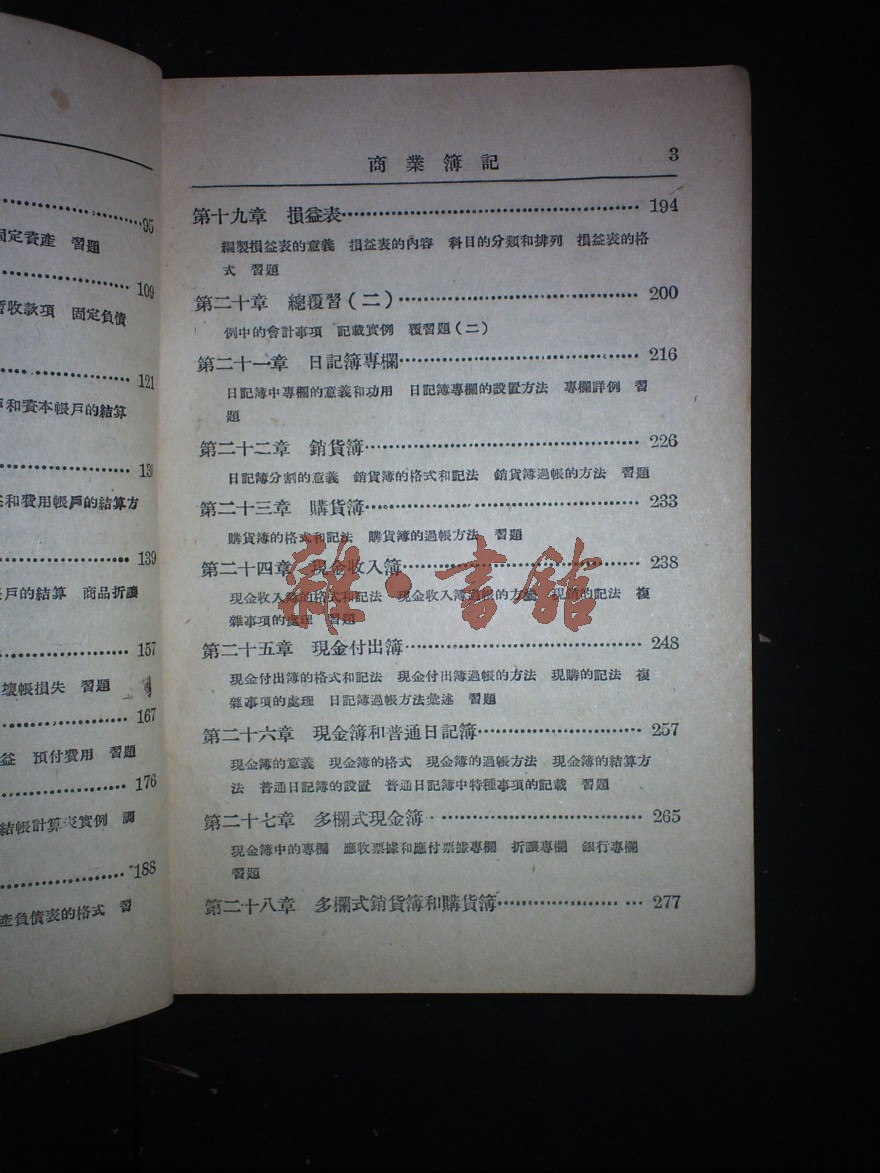 95
固定資產　習題
109
暫收款項　固定負債
121
戶和資本帳戶的結算
13
益和費用帳戶的結算方
139
帳戶的結算　商品折讓
157
壞帳損失　習題
167
益　預付費用　習題
176
結帳計算表實例　調
188
產負債表的格式　習
商業簿記　3
第十九章　損益表……194
編製損益表的意義　損益表的內容　科目的分類和排列　損益表的格
式　習題
第二十章　總覆習（二）……200
例中的會計事項　記載實例　覆習題（二）
第二十一章　日記簿專欄……216
日記簿中專欄的意義和功用　日記簿專欄的設置方法　專欄詳例　習
題
第二十二章　銷貨簿……226
日記簿分割的意義　銷貨簿的格式和記法　銷貨簿過帳的方法　習題
第二十三章　購貨簿……233
購貨簿的格式和記法　購貨簿的過帳方法　習題
第二十四章　現金收入簿……238
現金收入簿的格式和記法　現金收入簿過帳的方法　現銷的記法　複
雜事項的處理　習題
第二十五章　現金付出簿……248
現金付出簿的格式和記法　現金付出簿過帳的方法　現購的記法　複
雜事項的處理　日記簿過帳方法彙述　習題
第二十六章　現金簿和普通日記簿……257
現金簿的意義　現金簿的格式　現金簿的過帳方法　現金簿的結算方
法　普通日記簿的設置　普通日記簿中特種事項的記載　習題
第二十七章　多欄式現金簿……265
現金簿中的專欄　應收票據和應付票據專欄　折讓專欄　銀行專欄
習題
第二十八章　多欄式銷貨簿和購貨簿……277
雜·書館